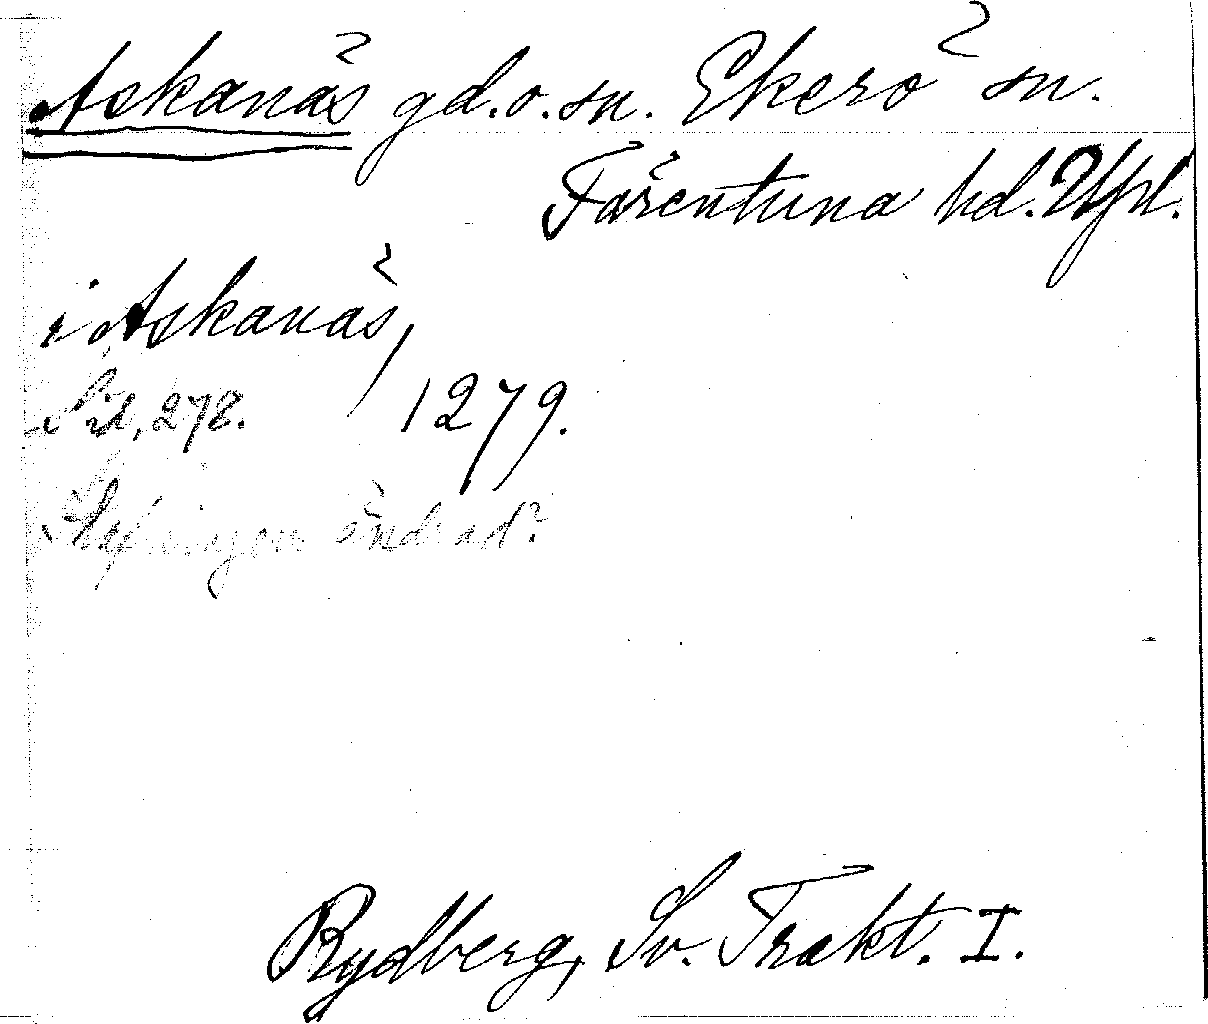 Askanäs gd. o. sn. Ekerö sn.
Färentuna hd. Upl.
i Askanäs,
Sid, 278. 1279.
Skrifningen ändrad?
Rydberg, Sv. Trakt. I.